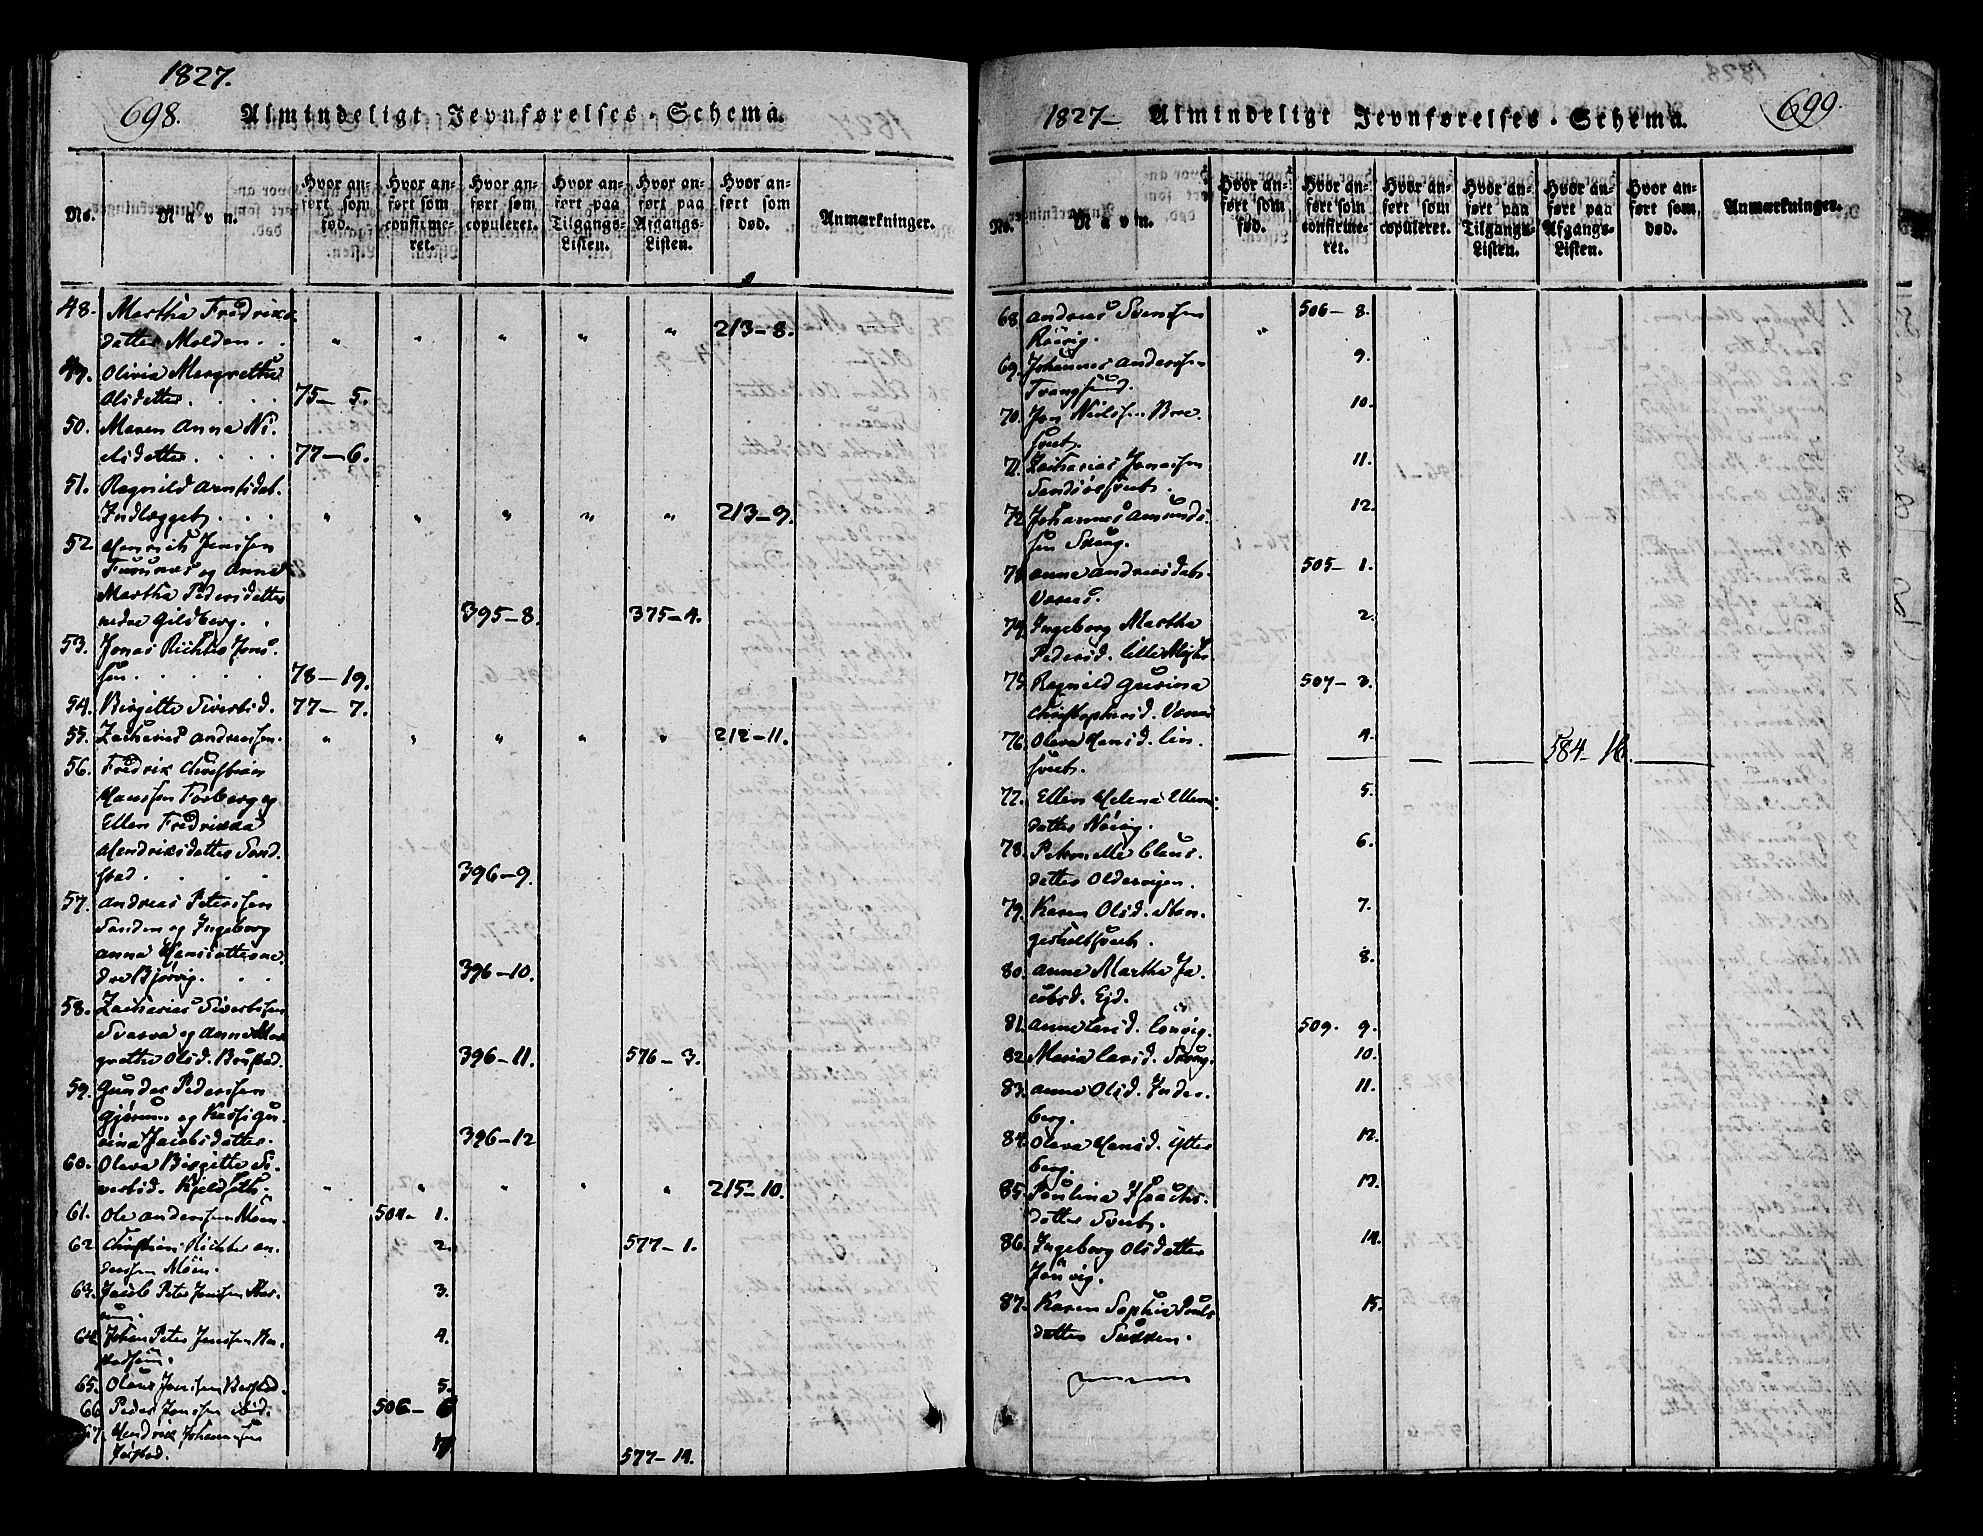 1827.
698. Almindeligt Jevnførelses-Schema.
No. Navn. Hvor anført som fød. Hvor anført som confirmeret. Hvor anført som copuleret. Hvor anført paa Tilgangs-Listen. Hvor anført paa Afgangs-Listen. Hvor anført som død. Anmærkninger.
48. Martha Fredrika
datter Molden. . " " " " " 213-8.
49. Olivia Margrethe
Olsdatter. . . . 75-5.
50. Maren Anna Ni-
elsdatter. . . . 77-6.
51. Ragnild Arntsdat.
Indlægget. . . " " " " " 213-9.
52. Henrich Jensen
Furunes og Anne
Martha Pedersdatter
nedre Gildberg. . 395-8. 375-4.
53. Jonas Richter Jons-
sen. . . . . 78-19.
54. Birgitte Sivertsd. 77-7.
55. Zacharias Andreassen. " " " " " 212-11.
56. Fredrik Christian
Hanssen Forberg og
Ellen Fredrikka
Hendriksdatter Sand-
stad. . . . 396-9.
57. Andreas Peterssen
Sanden og Ingeborg
Anna Hansdatter ne-
dre Bjørvig. . . 396-10.
58. Zacharias Sivertssen
Svarva og Anne Mar
grethe Olsd. Brustad. 396-11. 576-3.
59. Gunder Pederssen
og Kersti Gu-
rina Jacobsdatter. 396-12
60. Oleva Birgitte Si-
vertsd. Kjeldseth. " " " " " 215-10.
61. Ole Anderssen Moen. 504- 1.
62 Christian Richter An-
derssen Moen. 2. 577-1.
63. Jacob Peter Jonssen
3.
64. Johan Peter Jenssen
4.
65. Olaus Jenssen 5.
66 Peder Jonssen ibid. 506- 6
67. Hendrik Johannessen
7 577-14.
1827- Almindeligt Jevnførelses-Schema. 699.
No. Navn. Hvor anført som fød. Hvor anført som confirmeret. Hvor anført som copuleret. Hvor anført paa Tilgangs-Listen. Hvor anført paa Afgangs-Listen. Hvor anført som død. Anmærkninger.
68. Andreas Svenssen
Röivig. " 506- 8.
69. Johannes Anderssen
Trangsund. 9.
70. Jon Nielssen Bree-
svedt. 10.
71. Zacharias Jonassen
11.
72. Johannes Amunds-
sen Skaug. 12.
73. Anne Andreasdatr.
505- 1.
74. Ingeborg Martha
Pedersd. lille 2.
75. Ragnild Gurina
Christophersd. 507- 3.
76. Oleva Hansd. Lin-
svedt. 4. 584-16.
77. Ellen Helena Ellens-
datter 5.
78. Petronelle Claus-
datter Oldervigen. 6.
79. Karen Olsd. Sten-
7.
80. Anne Martha Ja-
cobsd. Ejd. 8.
81. Anne Larsd. 509. 9.
82. Maria Larsd. 10.
83. Anne Olsd. Inder-
berg. 11.
84. Oleva Hansd. Ytter
berg. 12.
85. Paulina Isaachs-
datter Svedt. 13.
86. Ingeborg Olsdatter
14.
87. Karen Sophia Pouls-
datter Sukken. 15.